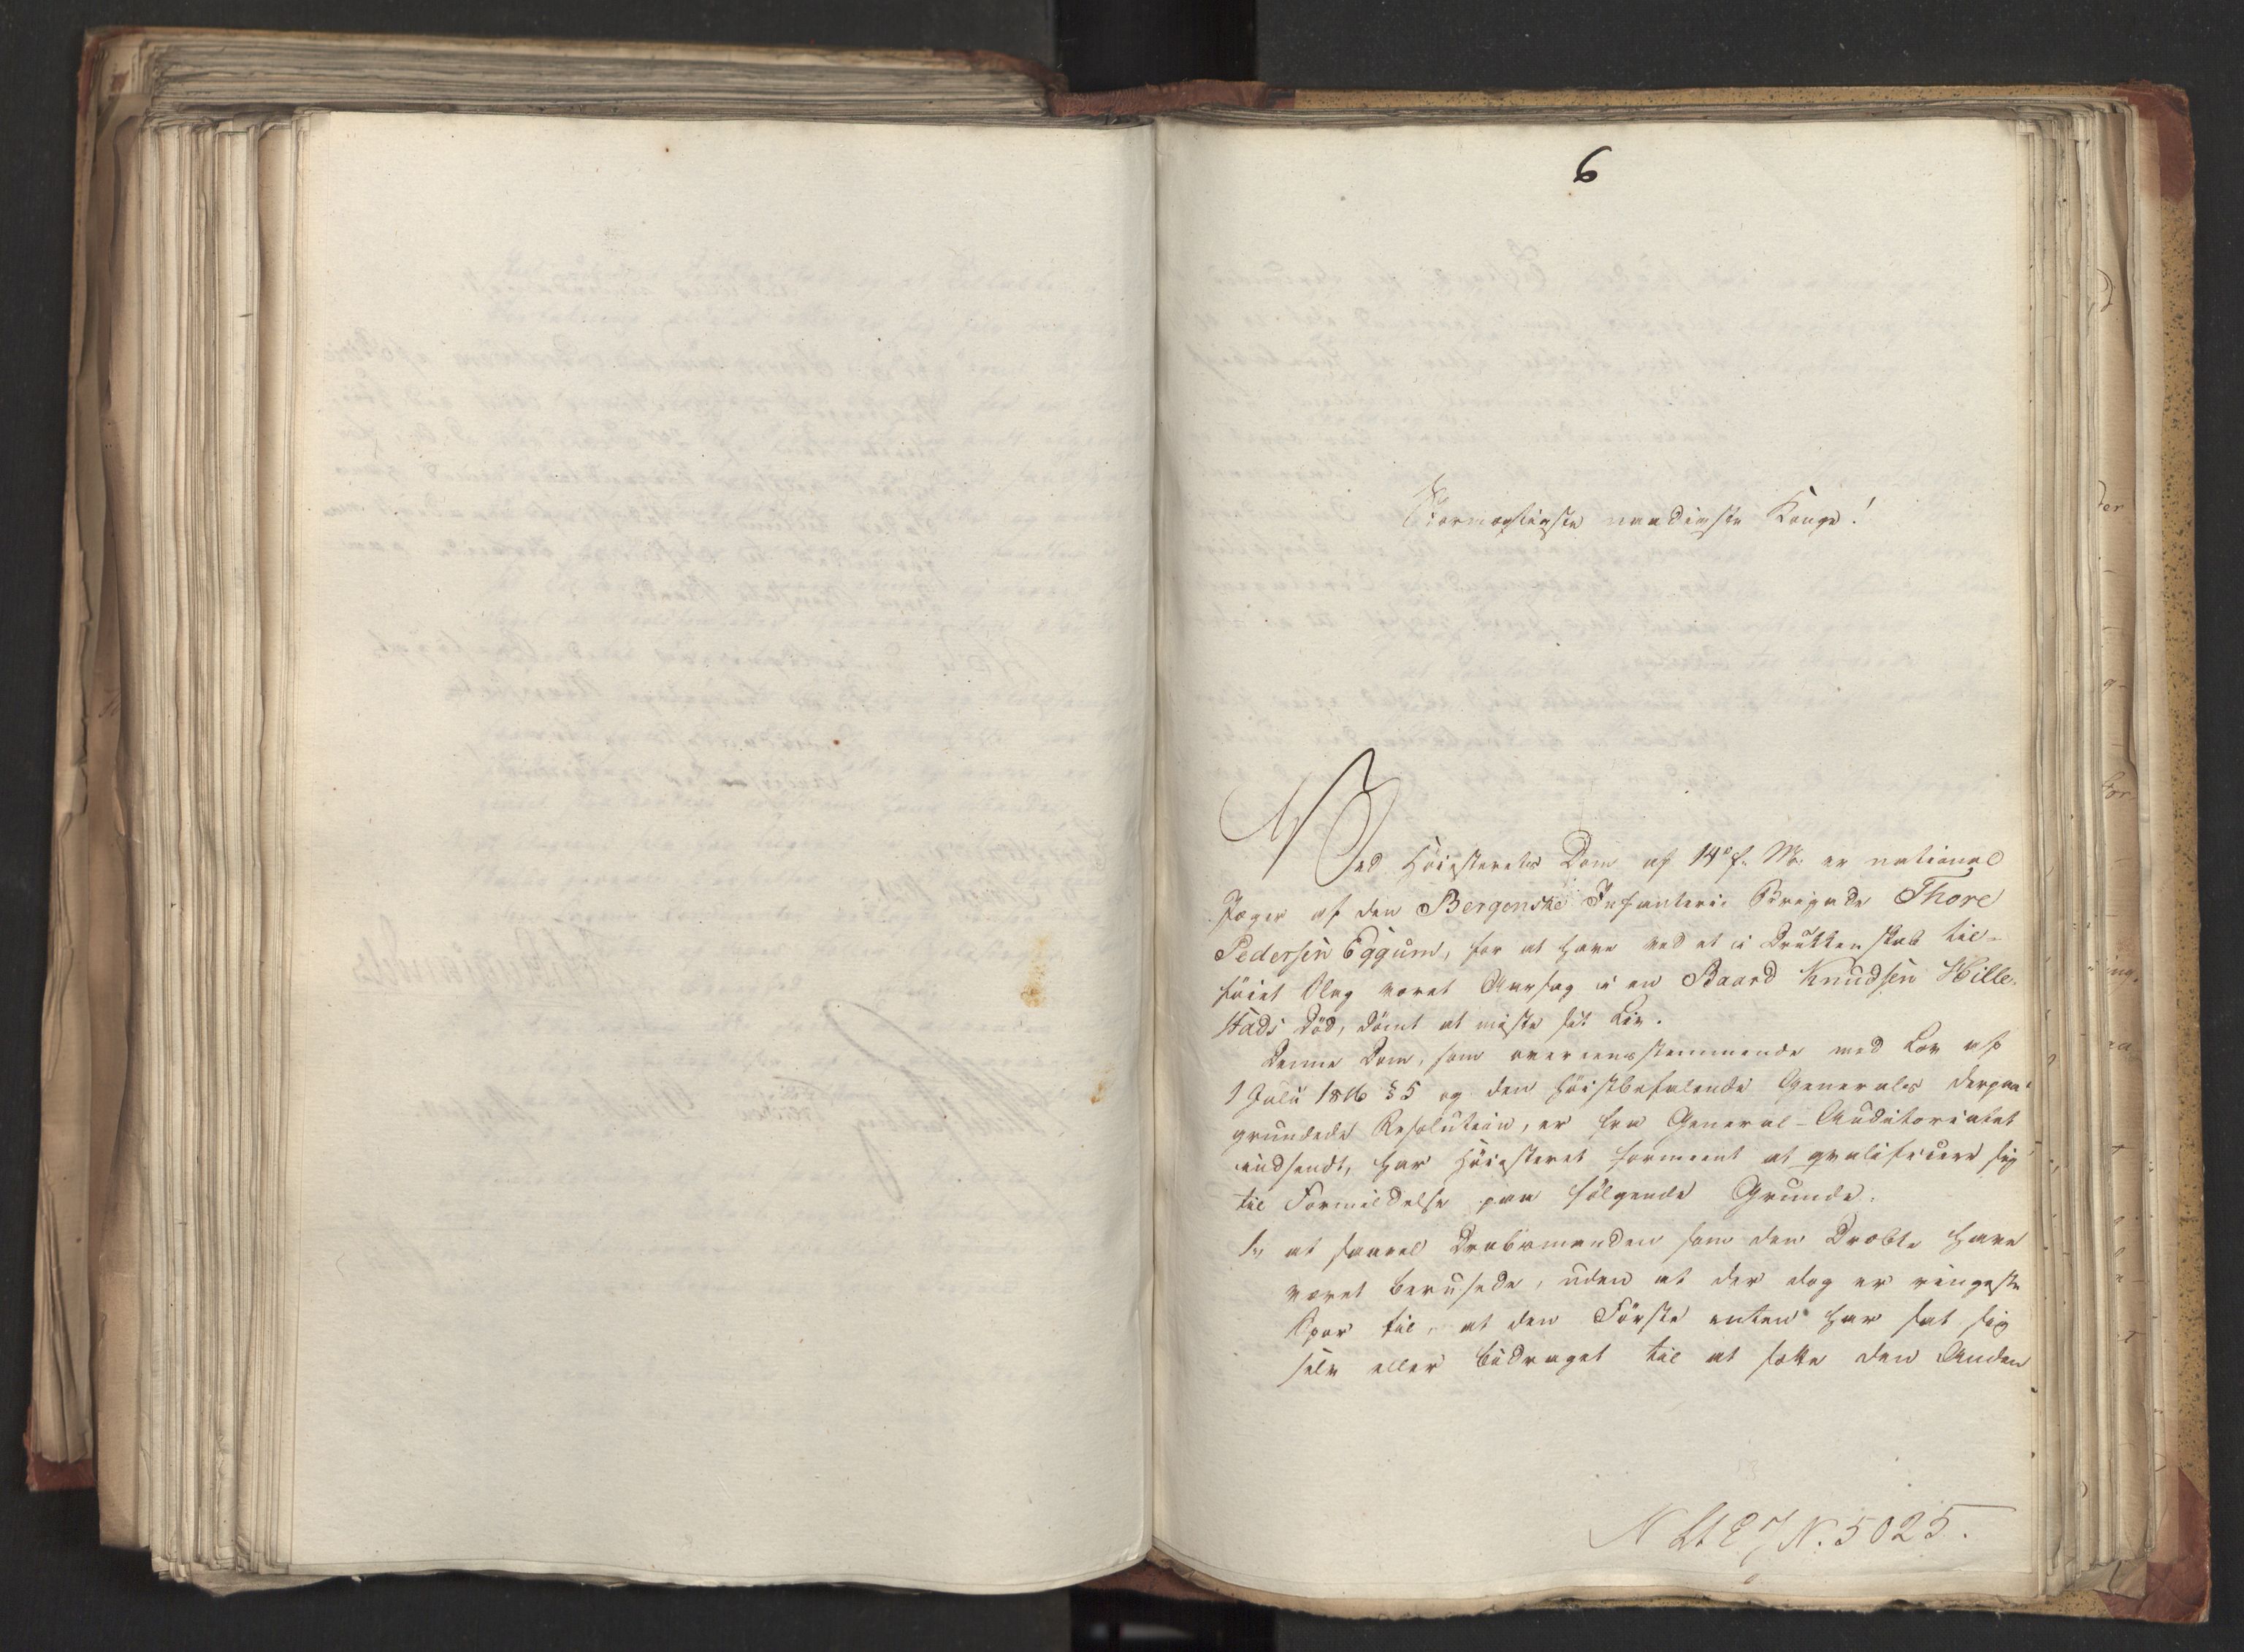 6
Stormægtigste naadigste Konge!
Ved Høiesterets Dom af 14de f. M. er national
Jæger af den Bergenske Infanterie Brigade Thore
Pedersen Eggum, for at have ved et i Drukkenskab til-
føiet Slag været Aarsag i en Baard Knudsen Hille-
stads Død, dømt at miste sit Liv.
Denne Dom, som overeensstemmende med Lov af
1 Julii 1816 § 5 og den høistbefalende Generals derpaa
grundede Resolution, er fra General-Auditoriatet
indsendt, har Høiesteret formeent at qvalificere sig
til Formildelse paa følgende Grunde.
1, at saavel Drabsmanden som den Dræbte have
været berusede, uden at der dog er ringeste
Spor til, at den Første enten har sat sig
selv eller bidraget til at sætte den Anden
N. 5025.